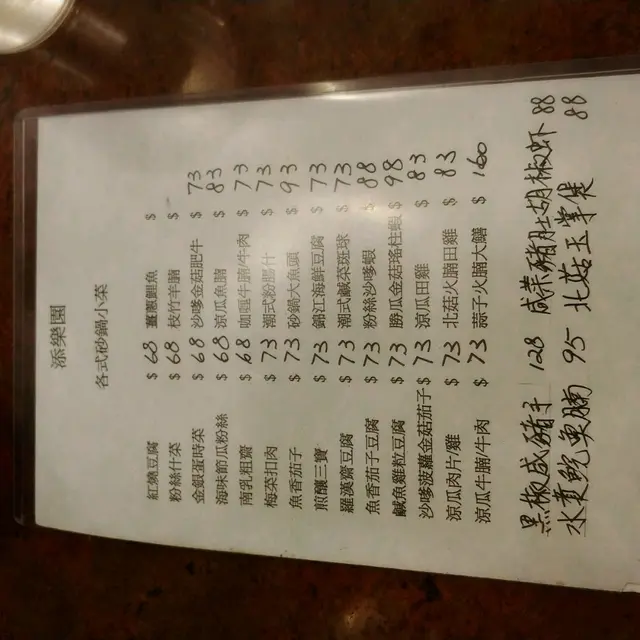 添樂園
各式砂鍋小菜
紅燒豆腐 $68 薑蔥鯉魚 $
粉絲什菜 $68 枝竹羊腩 $
金銀蛋時菜 $68 沙嗲金菇肥牛 $73
海味節瓜粉絲 $68 涼瓜魚腩 $83
南乳粗齋 $68 咖喱牛腩/牛肉 $73
梅菜扣肉 $73 潮式粉腸什 $73
魚香茄子 $73 砂鍋大魚頭 $93
煎釀三寶 $73 錦江海鮮豆腐 $73
羅漢齋豆腐 $73 潮式鹹菜斑球 $73
魚香茄子豆腐 $73 粉絲沙嗲蝦 $88
鹹魚雞粒豆腐 $73 勝瓜金菇瑤柱蝦 $98
沙嗲菠蘿金菇茄子 $73 涼瓜田雞 $83
涼瓜肉片/雞 $73 北菇火腩田雞 $83
涼瓜牛腩/牛肉 $73 蒜子火腩大鱔 $160
黑椒咸豬手 128 咸菜豬肚胡椒虾 88
水煮鲩鱼腩 95 北菇玉掌煲 88